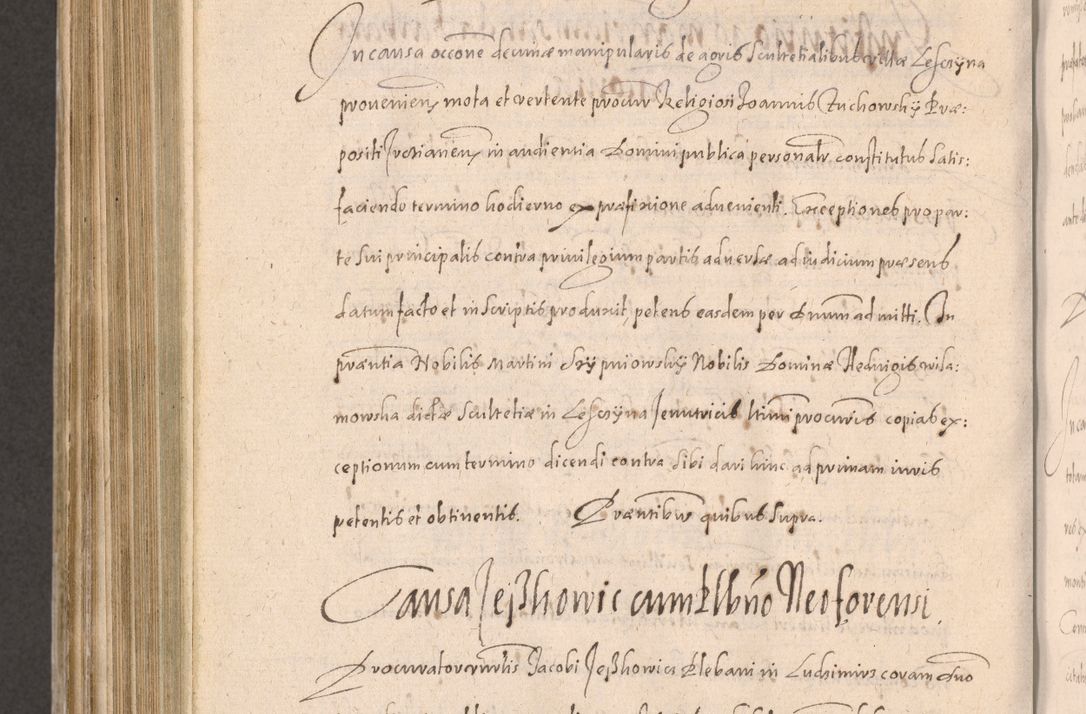 In causa occōne decimæ manipularis de agris Scultetialibus villæ Lesczÿna
proueniēn mota et vertente procūr Religiosi Joannis Zuchowskÿ Præ:
positi in audientia Domini publica personalr constitutus Satis:
faciendo termino hodierno ex præfixione aduenienti. Exceptiones pro par:
te sui principalis contra priuilegium partis aduersæ ad iudicium præsens
datum facto et in scriptis produxit, petens easdem per Dnum admitti. In
præntia Nobilis Martini Skrÿpniowskÿ Nobilis Dominæ Heduigis wila:
mowska dictæ Scultetiæ in Lesczÿna Jenutricis ltimi procuris copias ex:
ceptionum cum termino dicendi contra sibi dari hinc ad primam iuris
petentis et obtinentis. Præntibus quibus supra.
Causa Jeßhowic cum Plbno Neoforensi.
Procurator Jacobi Jeßhowics Plebani in Ludzimirs coram dno